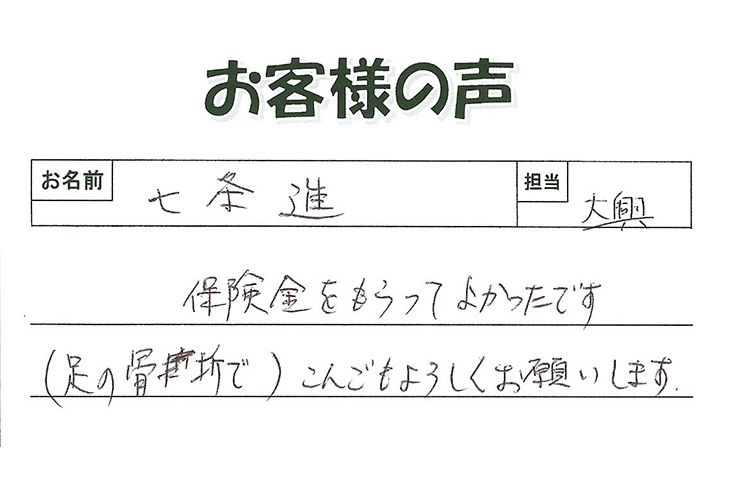 お客様の声
お名前 七条 進 担当 大興
保険金をもらってよかったです
(足の骨折で)こんごもよろしくお願いします.